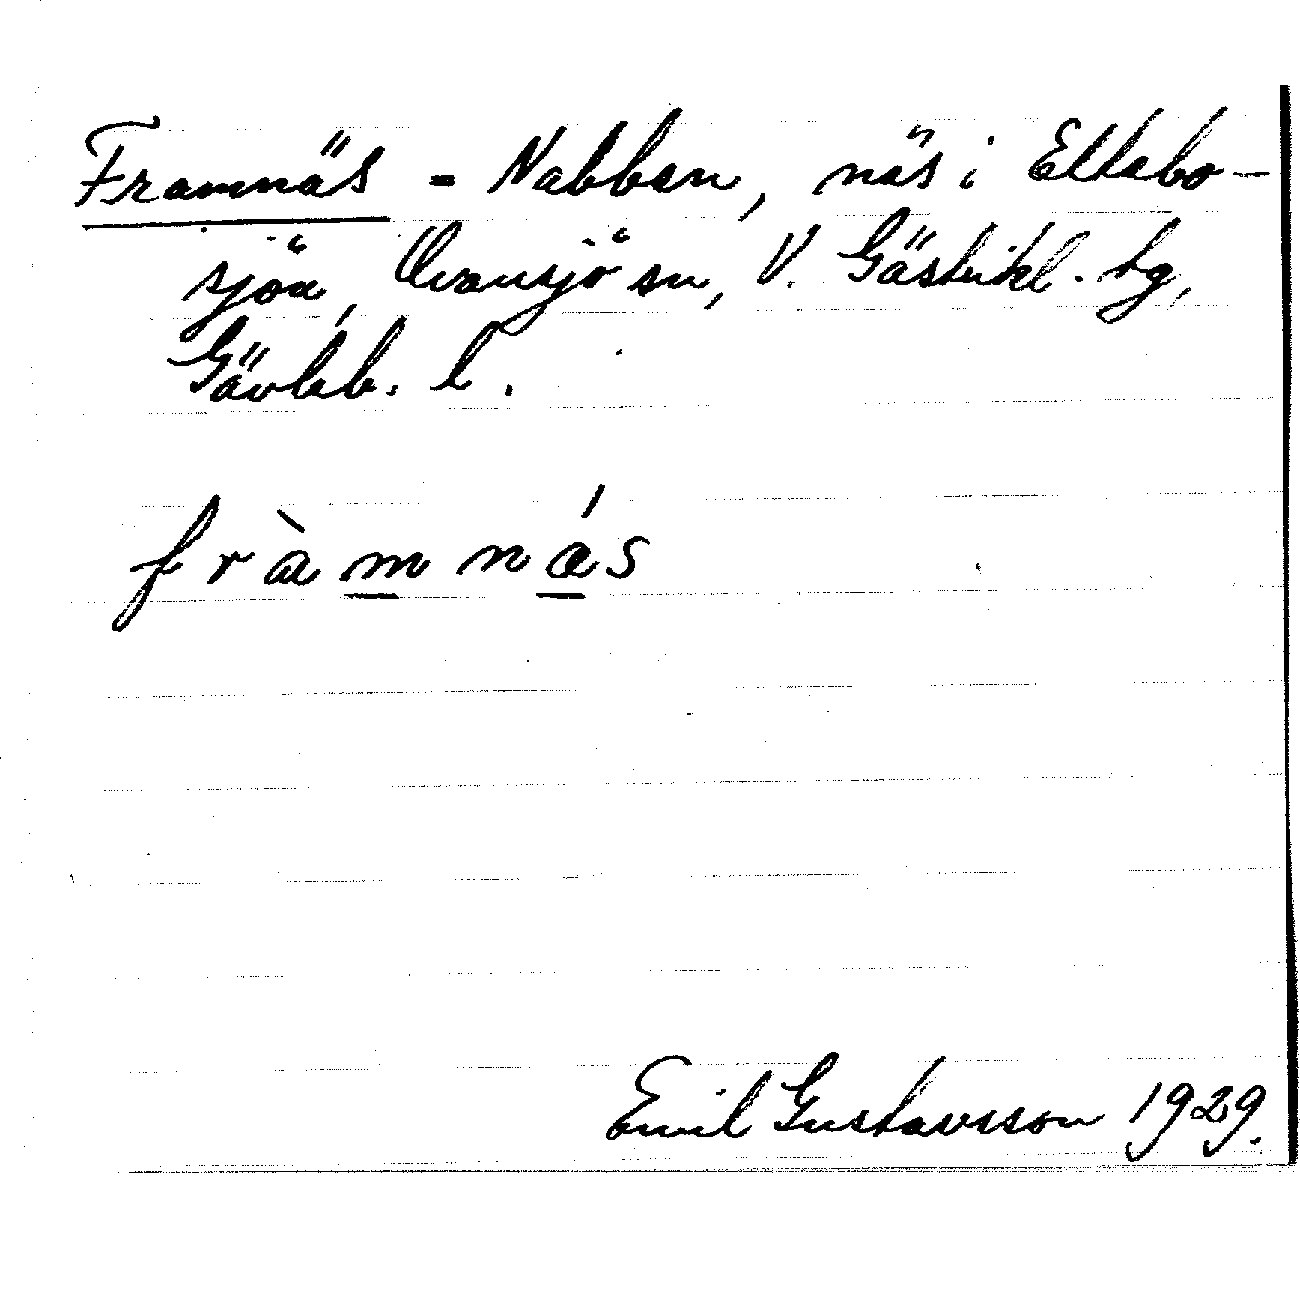 Framnäs = Nabben, näs i Ettebo-
sjön, Ovansjö sn, V. Gästrikl. tg,
Gävleb. l.
fràmnǽs
Emil Gustavsson 1929.